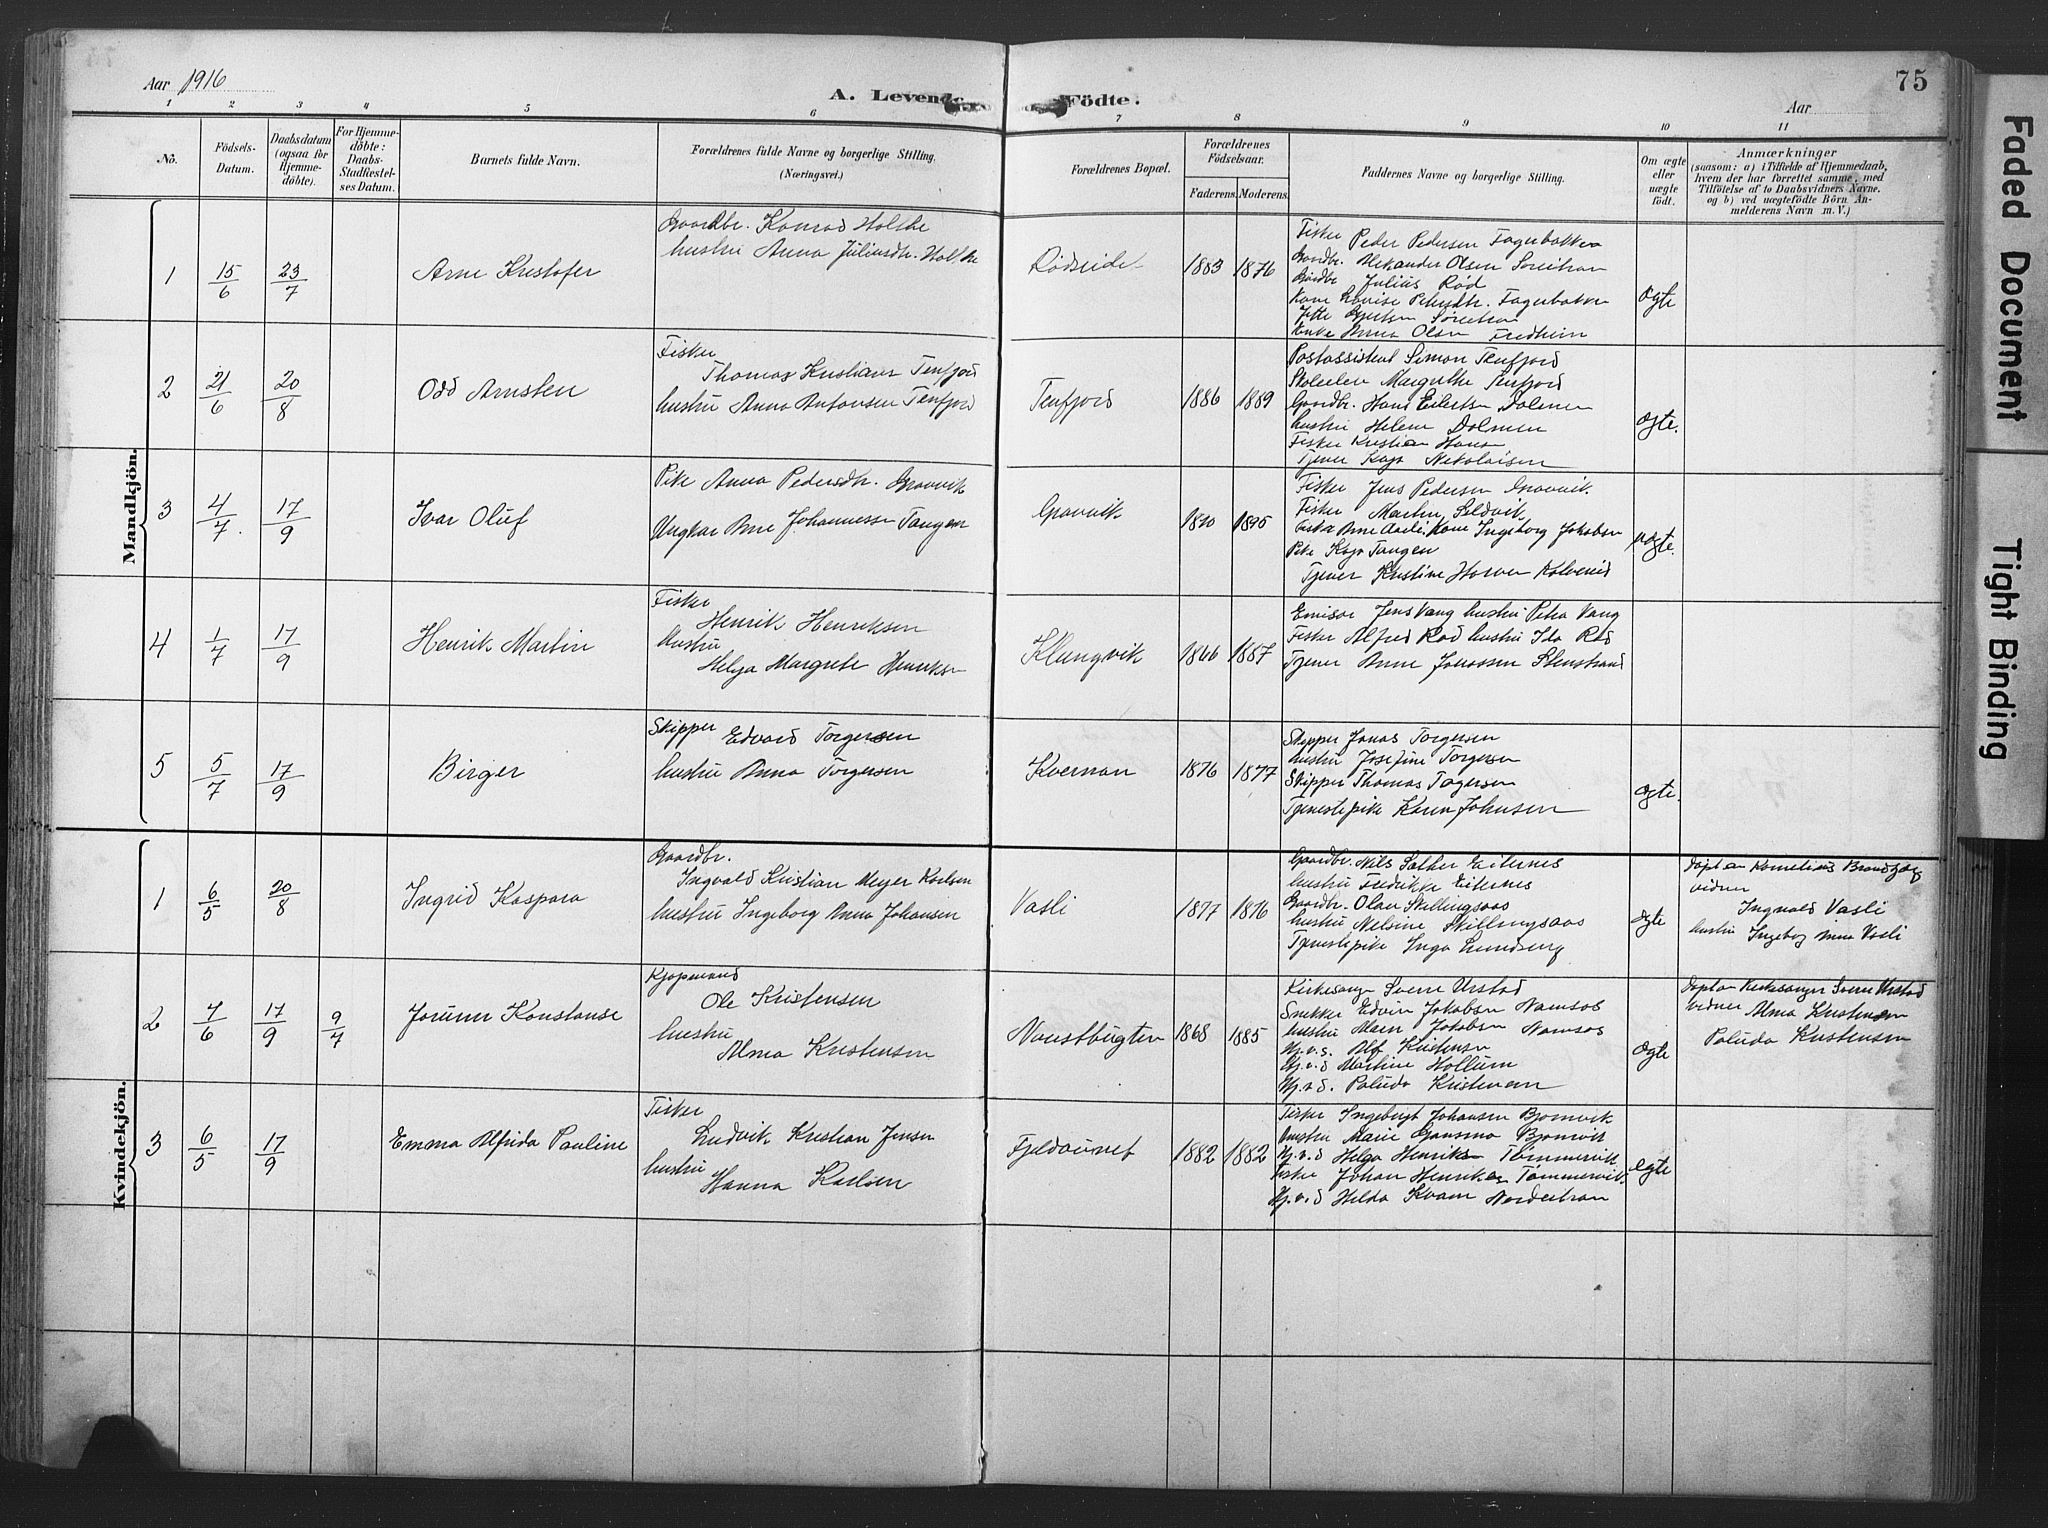 Aar 1916
A. Levende
Födte.
Aar
75
1 2 3 4 5 6 7 8 9 10 11
No.
Födsels-
Datum.
Daabsdatum
(ogsaa for
Hjemme-
döbte).
For Hjemme-
döbte:
Daabs-
Stadfæstel-
ses Datum.
Barnets fulde Navn.
Forældrenes fulde Navne og borgerlige Stilling.
(Næringsvei.)
Forældrenes Bopæl.
Forældrenes
Födselsaar.
Faderens. Moderens.
Faddernes Navne og borgerlige Stilling.
Om ægte
eller
uægte
født.
Anmærkninger
(saasom: a) i Tilfælde af Hjemmedaab,
hvem der har forrettet samme, med
Tilföielse af to Daabsvidners Navne.
og b) ved uægtefödte Börn An-
melderens Navn m. V.)
Mandkjön.
1
15/6
23/7
Arne Kristofer
Gaardbr. Konrad Holthe
hustru Anna Juliusdtr. Holthe
Rødseide
1883
1876
Fisker Peder Pedersen Fagerbakken
Gaardbr. Aleksander Olsen
Gaardbr. Julius Rød
Kone Lovise Pedersdtr. Fagerbakken
Enke Anna Olsen Fredheim
ægte
2
21/6
20/8
Odd Arnsten
Fisker
Thomas Kristianer Tenfjord
hustru Anna Antonsen Tenfjord
Tenfjord
1886
1889
Postassistent Simon Tenfjord
Margrethe Tenfjord
Gaardbr. Hans Eilertsen Dolmen
hustru Helene Dolmen
Fisker Kristian Hansen
Tjener Kaja Nikolaisen
ægte.
3
4/7.
17/9
Ivar Oluf
Pike Anna Pedersdtr. Gravvik
Ungkar Arne Johannessen Tangen
Gravvik
1890
1895
Fisker Jens Pedersen Gravvik.
Fisker Martin Seldvik
Kone Ingeborg Jakobsen
Pike Kaja Tangen
Tjener Kristine Horven Kolvereid
uægte.
4
1/7
17/9
Henrik Martin
Fisker
Henrik Henriksen
hustru
Helga Margrete Henriksen
Klungvik
1866
1887
Emisær Jens Vang hustru Petra Vang
Fisker Alfred Rød hustru Ida Rød
Tjener Anne Jonassen Stenstrand
5
5/7
17/9
Birger
Skipper Edvard Torgersen
hustru Anna Torgersen
Kvernan
1876
1877
Skipper Jonas Torgersen
hustru Josefine Torgersen
Skipper Thomas Torgersen
Tjenestepike Karen Johnsen
ægte.
Kvindekjön.
1
6/5
20/8
Ingrid Kaspara
Gaardbr.
Ingvald Kristian Meyer Karlsen
hustru Ingeborg Anna Johansen
Vasli
1877
1876
Gaardbr. Nils Sæther Eiternes
hustru Fredrikke Eiternes
Gaardbr. Olaus Skillingsaas
hustru Nelsine Skillingsaas
Tjenestepike Inga Lundseng
ægte
døpt av Kornelius Brandzæg
vidner
Ingvald Vasli
hustru Ingeborg Anna Vasli
2
7/6
17/9
9/7
Jorunn Konstanse
Kjøpmand
Ole Kristensen
hustru
Alma Kristensen
Naustbugten
1868
1885
Kirkesanger Sverre Urstad
Snekker Edvin Jakobsen Namsos
hustru Maren Jakobsen Namsos
Hj.v.s. Alf Kristensen
Hj.v.d. Martine Hollum
Hj.v.d. Palūda Kristensen
ægte
døpt av Kirkesanger Sverre Urstad
vidner Alma Kristensen
Palūda Kristensen
3
6/5
17/9
Emma Alfrida Pauline
Fisker
Ludvik Kristian Jensen
hustru
Hanna Karlsen
Fjeldaunet
1882
1882
Fisker Ingebrigt Johansen Bjørnvik
hustru Marie Gansmo Bjørnvik
Hj.v.d. Helga Henriksen Tømmervik
Fisker Johan Henriksen Tømmervik.
Hj.v.d. Helda Kvam Nordestran
ægte
Faded Document
Tight Binding